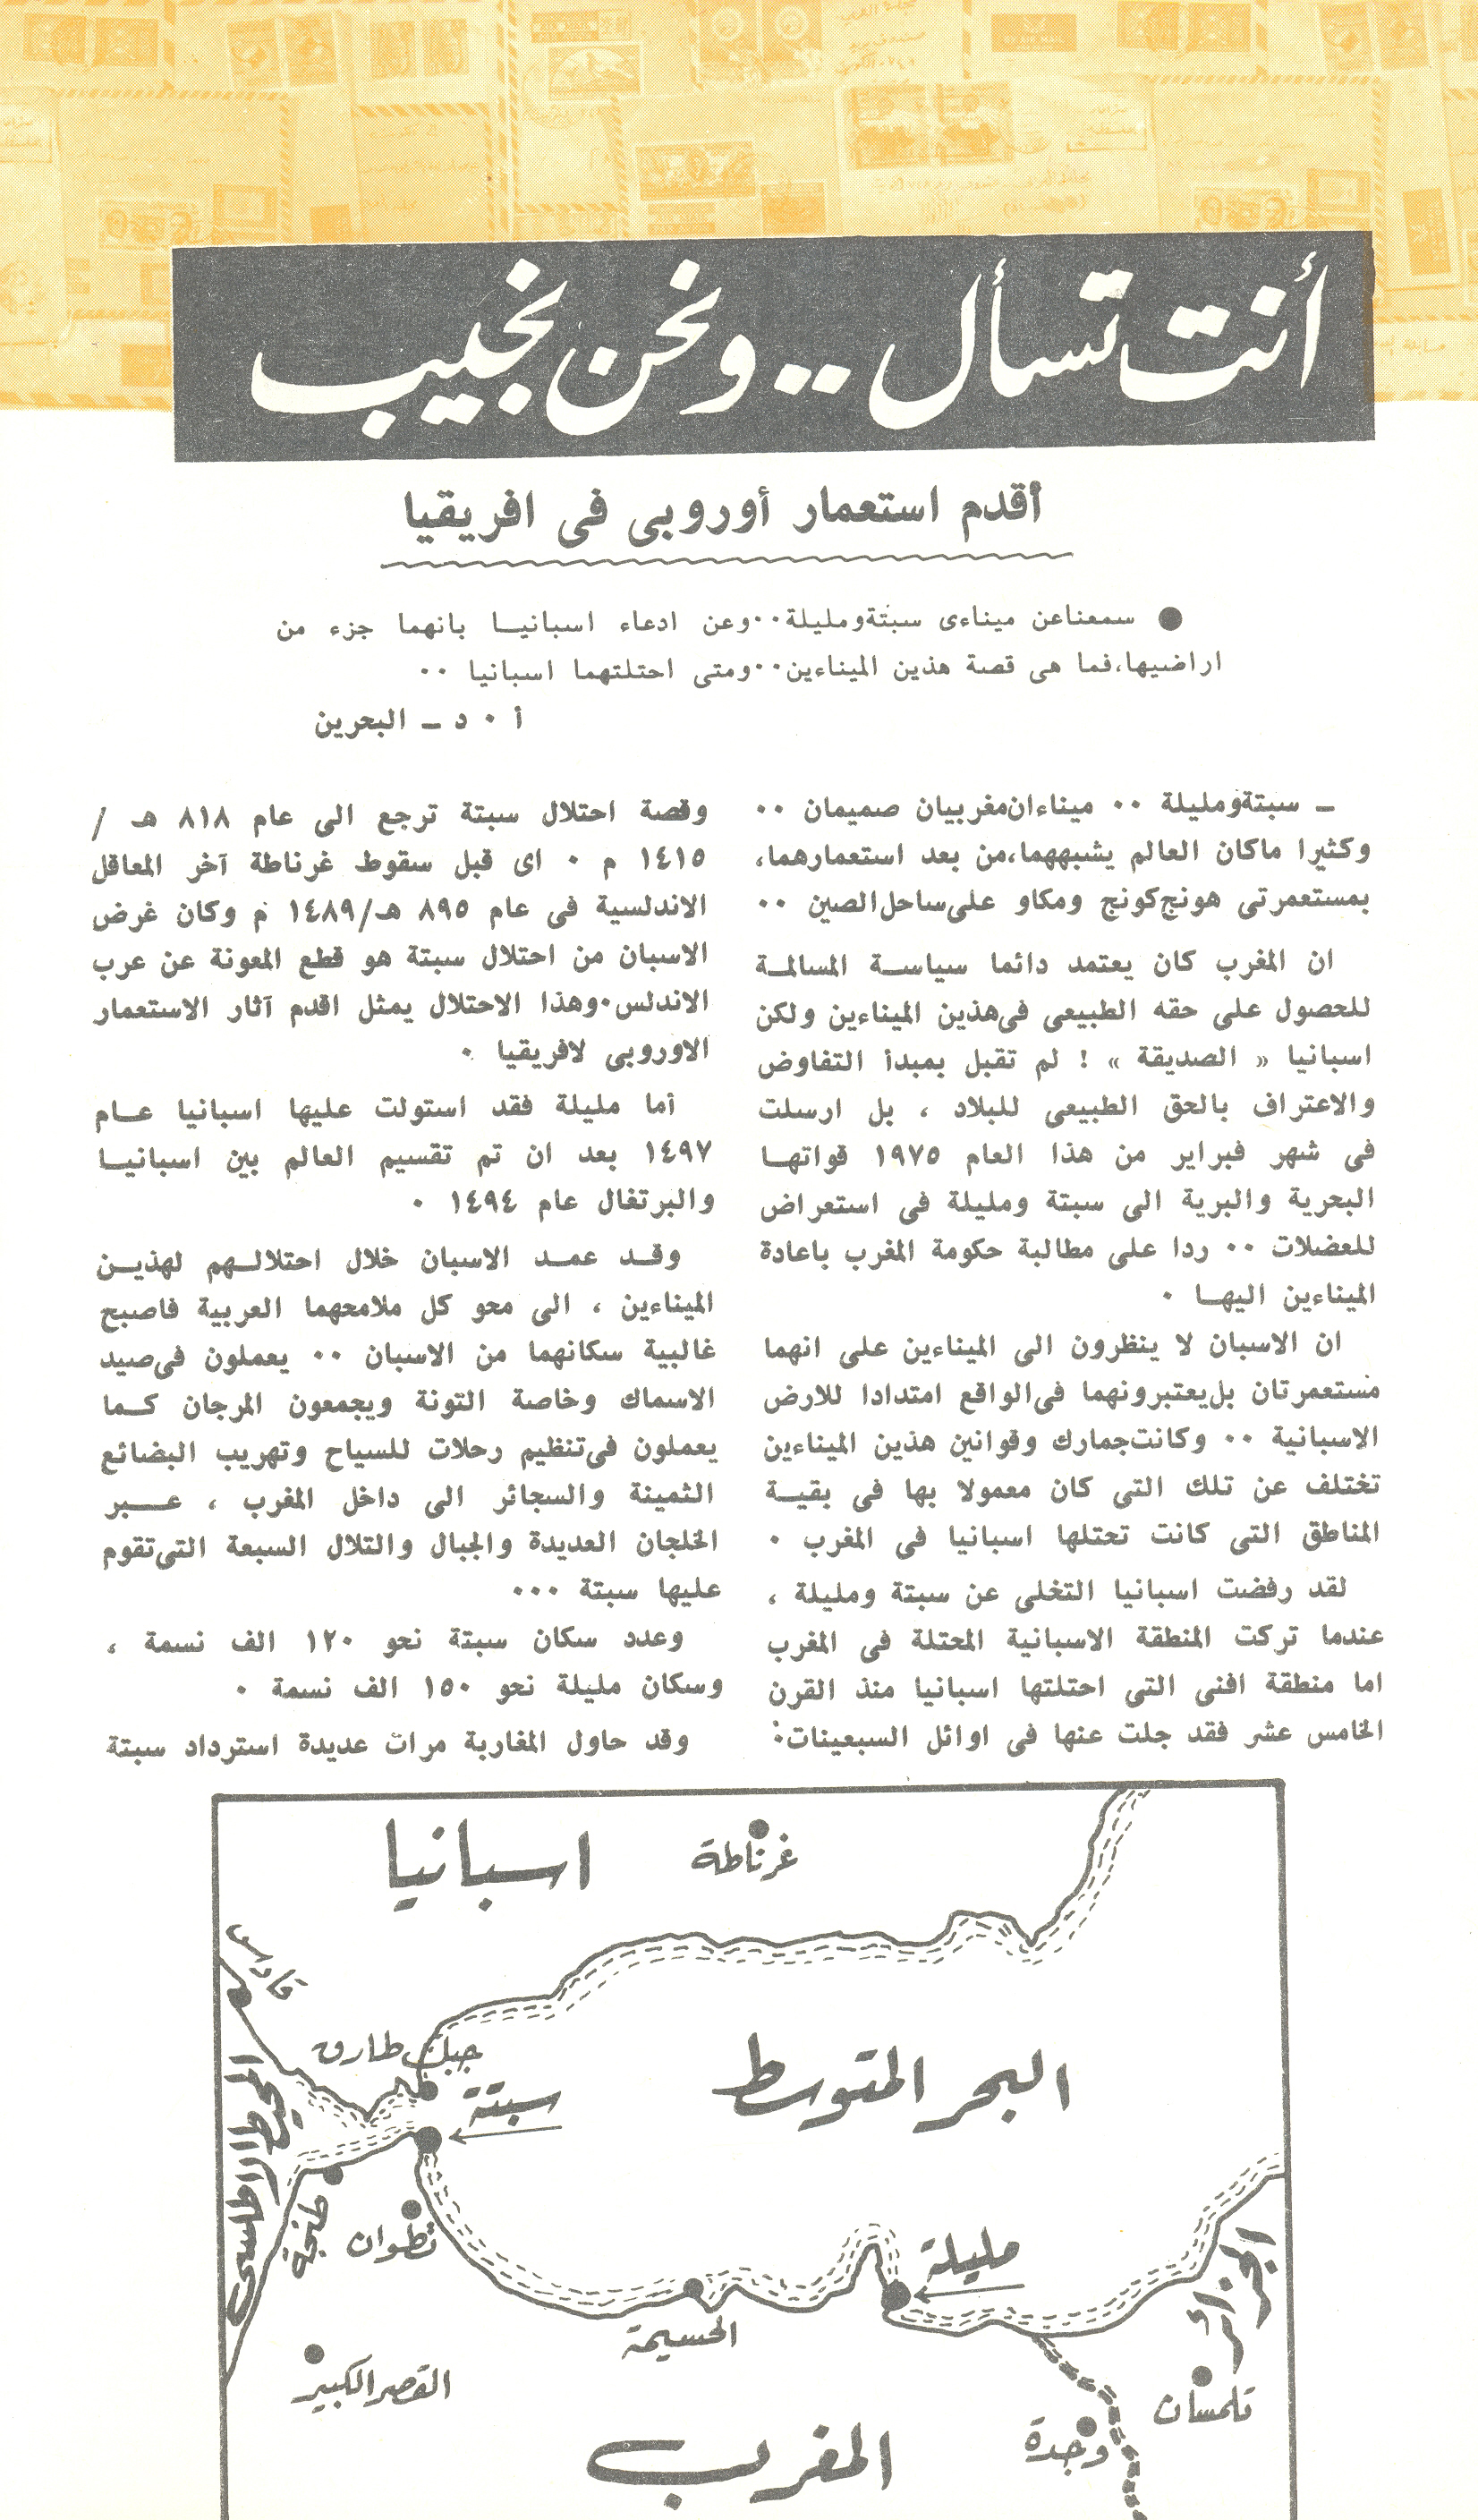 أنت تسأل .. ونحن نجيب
أقدم استعمار أوروبى فى افريقيا
● سمعنا عن ميناءى سبتة ومليلة .. وعن ادعاء اسبانيا بانهما جزء من
اراضيها، فما هى قصة هذين الميناءين .. ومتى احتلتهما اسبانيا ..
أ . د ــ البحرين
ــ سبتة ومليلة .. ميناءان مغربيان صميمان ..
وكثيرا ماكان العالم يشبههما، من بعد استعمارهما،
بمستعمرتى هونج كونج ومكاو على ساحل الصين ..
ان المغرب كان يعتمد دائما سياسة المسالمة
للحصول على حقه الطبيعى فى هذين الميناءين ولكن
اسبانيا « الصديقة » ! لم تقبل بمبدأ التفاوض
والاعتراف بالحق الطبيعى للبلاد ، بل ارسلت
فى شهر فبراير من هذا العام ١٩٧٥ قواتها
البحرية والبرية الى سبتة ومليلة فى استعراض
للعضلات .. ردا على مطالبة حكومة المغرب باعادة
الميناءين اليها .
ان الاسبان لا ينظرون الى الميناءين على انهما
مستعمرتان بل يعتبرونهما فى الواقع امتدادا للارض
الاسبانية .. وكانت جمارك وقوانين هذين الميناءين
تختلف عن تلك التى كان معمولا بها فى بقية
المناطق التى كانت تحتلها اسبانيا فى المغرب .
لقد رفضت اسبانيا التخلى عن سبتة ومليلة ،
عندما تركت المنطقة الاسبانية المحتلة فى المغرب
اما منطقة افنى التى احتلتها اسبانيا منذ القرن
الخامس عشر فقد جلت عنها فى اوائل السبعينات.
وقصة احتلال سبتة ترجع الى عام ٨١٨ هـ /
١٤١٥ م . اى قبل سقوط غرناطة آخر المعاقل
الاندلسية فى عام ٨٩٥ هـ/١٤٨٩ م وكان غرض
الاسبان من احتلال سبتة هو قطع المعونة عن عرب
الاندلس. وهذا الاحتلال يمثل اقدم آثار الاستعمار
الاوروبى لافريقيا .
أما مليلة فقد استولت عليها اسبانيا عام
١٤٩٧ بعد ان تم تقسيم العالم بين اسبانيا
والبرتغال عام ١٤٩٤ .
وقد عمد الاسبان خلال احتلالهم لهذين
الميناءين ، الى محو كل ملامحهما العربية فاصبح
غالبية سكانهما من الاسبان .. يعملون فى صيد
الاسماك وخاصة التونة ويجمعون المرجان كما
يعملون فى تنظيم رحلات للسياح وتهريب البضائع
الثمينة والسجائر الى داخل المغرب ، عبر
الخلجان العديدة والجبال والتلال السبعة التى تقوم
عليها سبتة ...
وعدد سكان سبتة نحو ١٢٠ الف نسمة ،
وسكان مليلة نحو ١٥٠ الف نسمة .
وقد حاول المغاربة مرات عديدة استرداد سبتة
اسبانيا
غرناطة
قادس
جبل طارق
سبتة
البحر المتوسط
المحيط الاطلسى
طنجة
تطوان
مليلة
الجزائر
الحسيمة
القصر الكبير
تلمسان
وجدة
المغرب